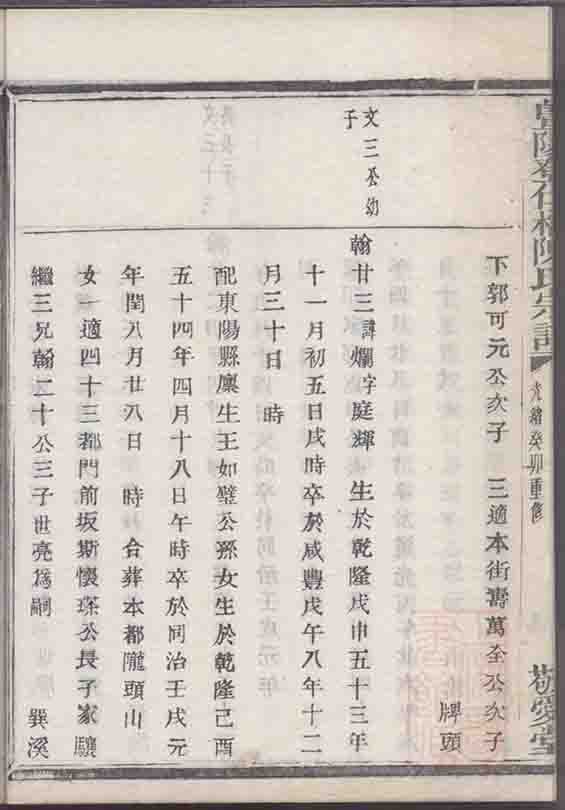 陳氏宗譜
光緒癸卯重修
敬愛堂
下郭可元公次子 三適本街壽萬全公次子
牌頭
文三公幼子
翰廿三諱爛字庭輝生於乾隆戊申五十三年
十一月初五日戌時卒於咸豐戊午八年十二
月三十日 時
配東陽縣廩生王如璧公孫女生於乾隆己酉
五十四年四月十八日午時卒於同治壬戌元
年閏八月廿八日 時合葬本都隴頭山
女一適四十三都門前坂斯懷琛公長子家驤
繼三兄翰二十公三子世亮為嗣 巽溪